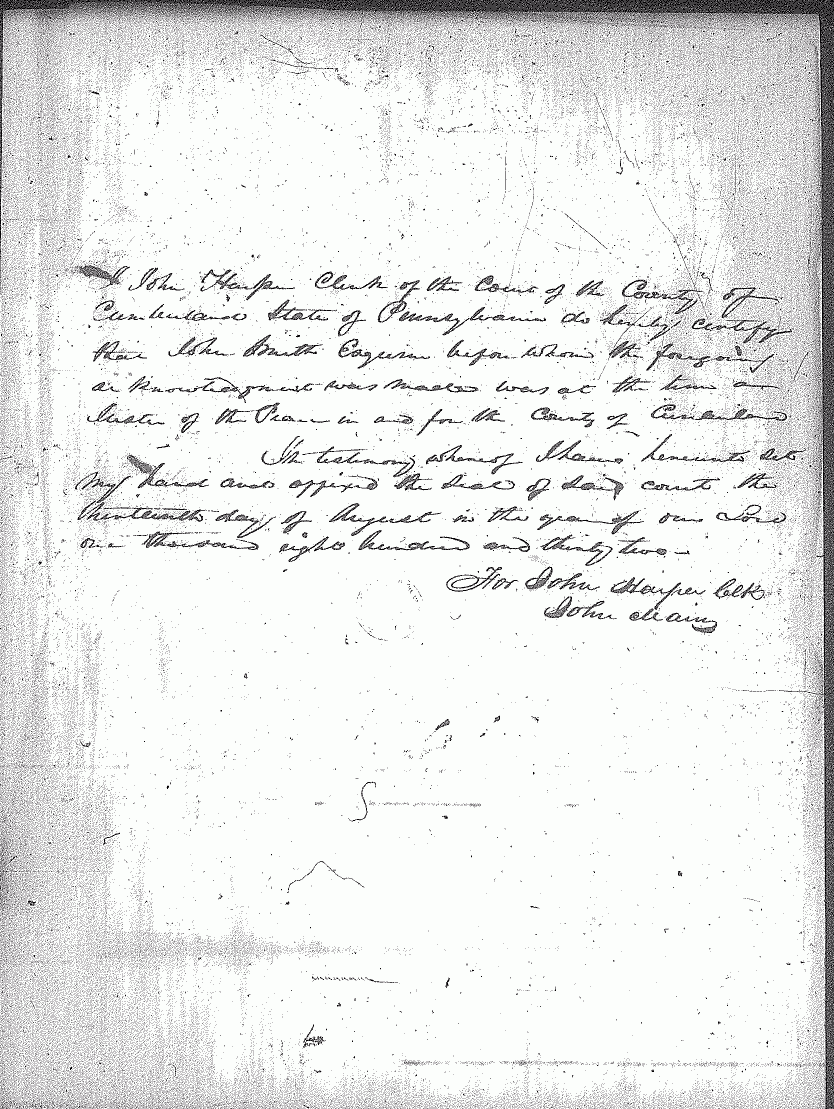 I John Harper Clerk of the Court of the County of
Cumberland State of Pennsylvania do hereby certify
that John Smith Esquire before whom the foregoing
acknowledgment was made was at the time a
Justice of the Peace in and for the County of Cumberland
In testimony whereof I have hereunto set
my hand and affixed the Seal of said court the
day of August in the year of our Lord
one thousand eight hundred and thirty two
For John Harper Clk
John Main